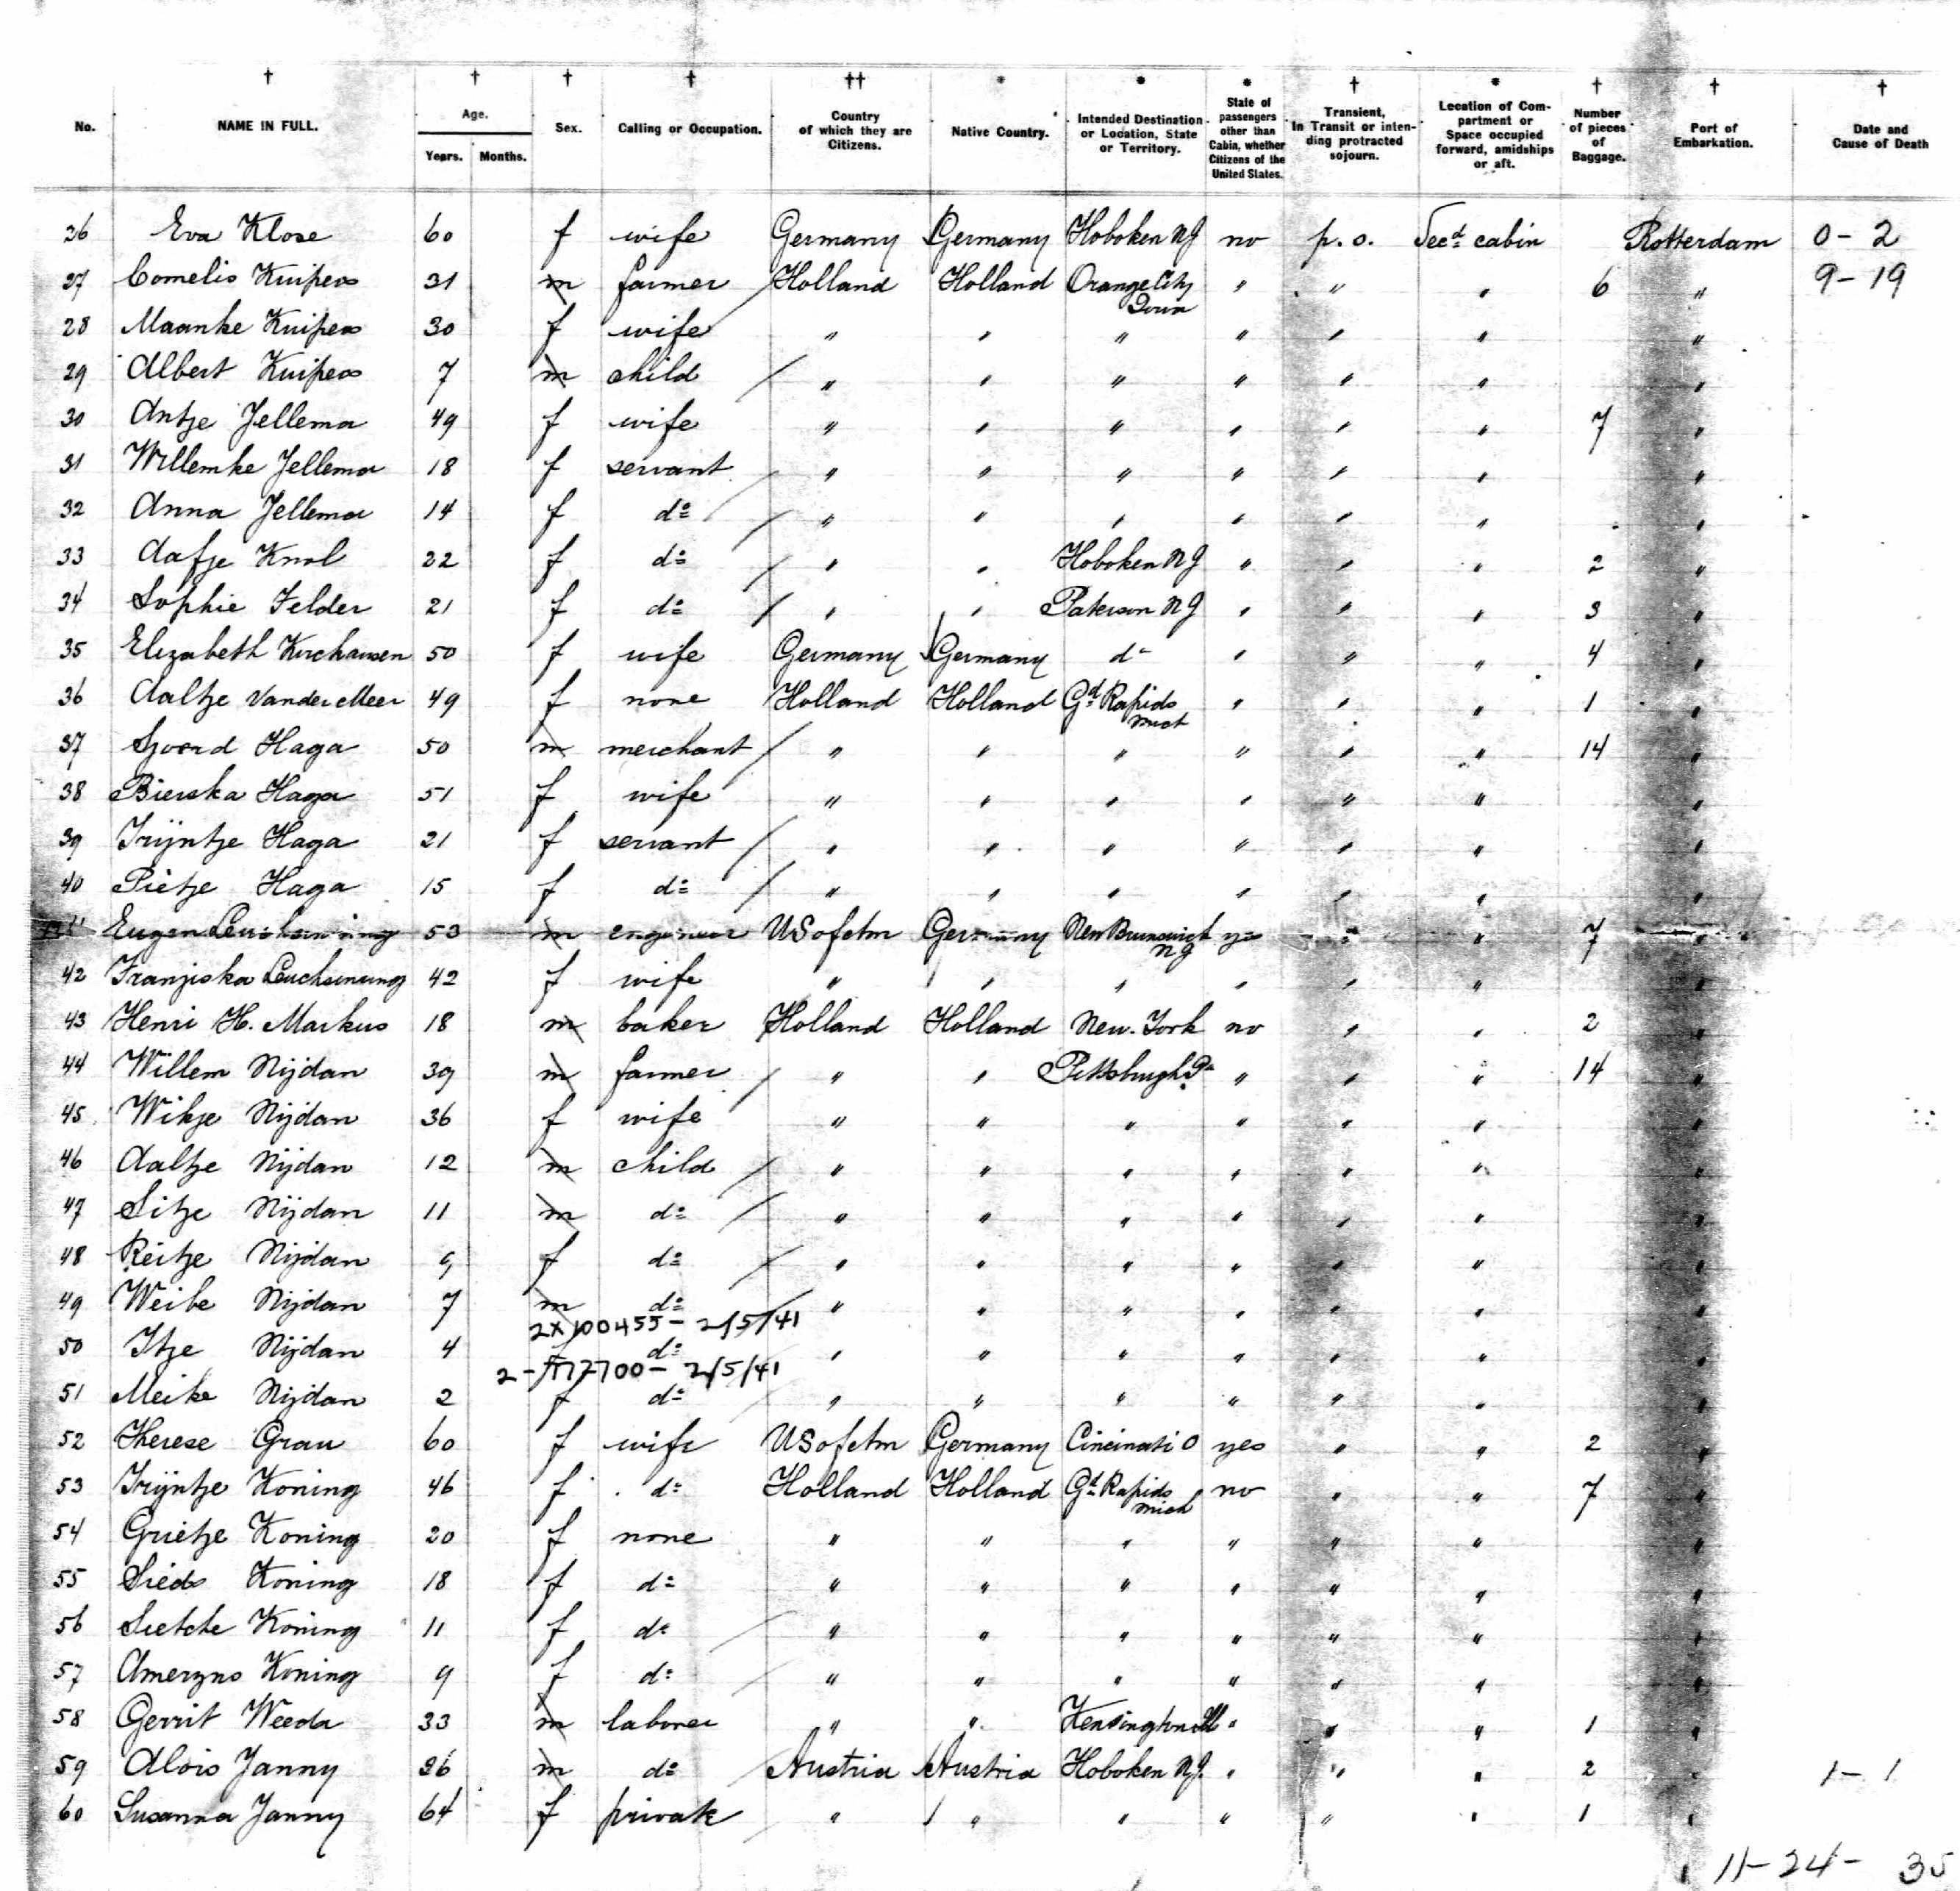 No. NAME IN FULL. Age. Years. Months. Sex. Calling or Occupation. Country of which they are Citizens. Native Country. Intended Destination or Location, State or Territory. State of passengers other than Cabin, whether Citizens of the United States. Transient, In Transit or intending protracted sojourn. Location of Compartment or Space occupied forward, amidships or aft. Number of pieces of Baggage. Port of Embarkation. Date and Cause of Death
26 Eva Klose 60 f wife Germany Germany Hoboken NJ no p. o. Secd cabin Rotterdam 0 - 2
27 Cornelis Kuipers 31 m farmer Holland Holland Orange City Iowa " " " 6 " 9 - 19
28 Maanke Kuipers 30 f wife " " " " " " "
29 Albert Kuipers 7 m child " " " " " " "
30 Antje Jellema 49 f wife " " " " " " 7 "
31 Willemke Jellema 18 f servant " " " " " " "
32 Anna Jellema 14 f do " " " " " " "
33 Aafje Knol 22 f do " " Hoboken NJ " " " 2 "
34 Sophie Felder 21 f do " " Paterson NJ " " " 3 "
35 Elizabeth 50 f wife Germany Germany do " " " 4 "
36 Aaltje Vander Meer 49 f none Holland Holland Gd Rapids Mich " " " 1 "
37 Sjoerd Haga 50 m merchant " " " " " " 14 "
38 Haga 51 f wife " " " " " " "
39 Trijntje Haga 21 f servant " " " " " " "
40 Pietje Haga 15 f do " " " " " " "
Eugen 53 m engineer US of Am Germany New Brunswick NJ yes " " 7 "
42 Franziska 42 f wife " " " " " " "
43 Henri H. Markus 18 m baker Holland Holland New-York no " " 2 "
44 Willem Nijdan 39 m farmer " " Pittsburgh Pa " " " 14 "
45 Wikje Nijdan 36 f wife " " " " " " "
46 Aaltje Nijdan 12 m child " " " " " " "
47 Sitje Nijdan 11 m do " " " " " " "
48 Reitje Nijdan 9 f do " " " " " " "
49 Weibe Nijdan 7 m do " " " " " " "
2X100455 - 2/5/41
50 Itje Nijdan 4 f do " " " " " " "
2/5/41
51 Meike Nijdan 2 f do " " " " " " "
52 Therese Grau 60 f wife US of Am Germany Cincinati O yes " " 2 "
53 Trijntje Koning 46 f do Holland Holland Gd Rapids Mich no " " 7 "
54 Grietje Koning 20 f none " " " " " " "
55 Sieds Koning 18 f do " " " " " " "
56 Koning 11 f do " " " " " " "
57 Koning 9 f do " " " " " " "
58 Gerrit Weeda 33 m laborer " " Kensington Ill " " " 1 "
59 Alois Janny 36 m do Austria Austria Hoboken NJ. " " " 2 " 1 - 1
60 Susanna Janny 64 f private " " " " " " 1 "
11 - 24 - 35